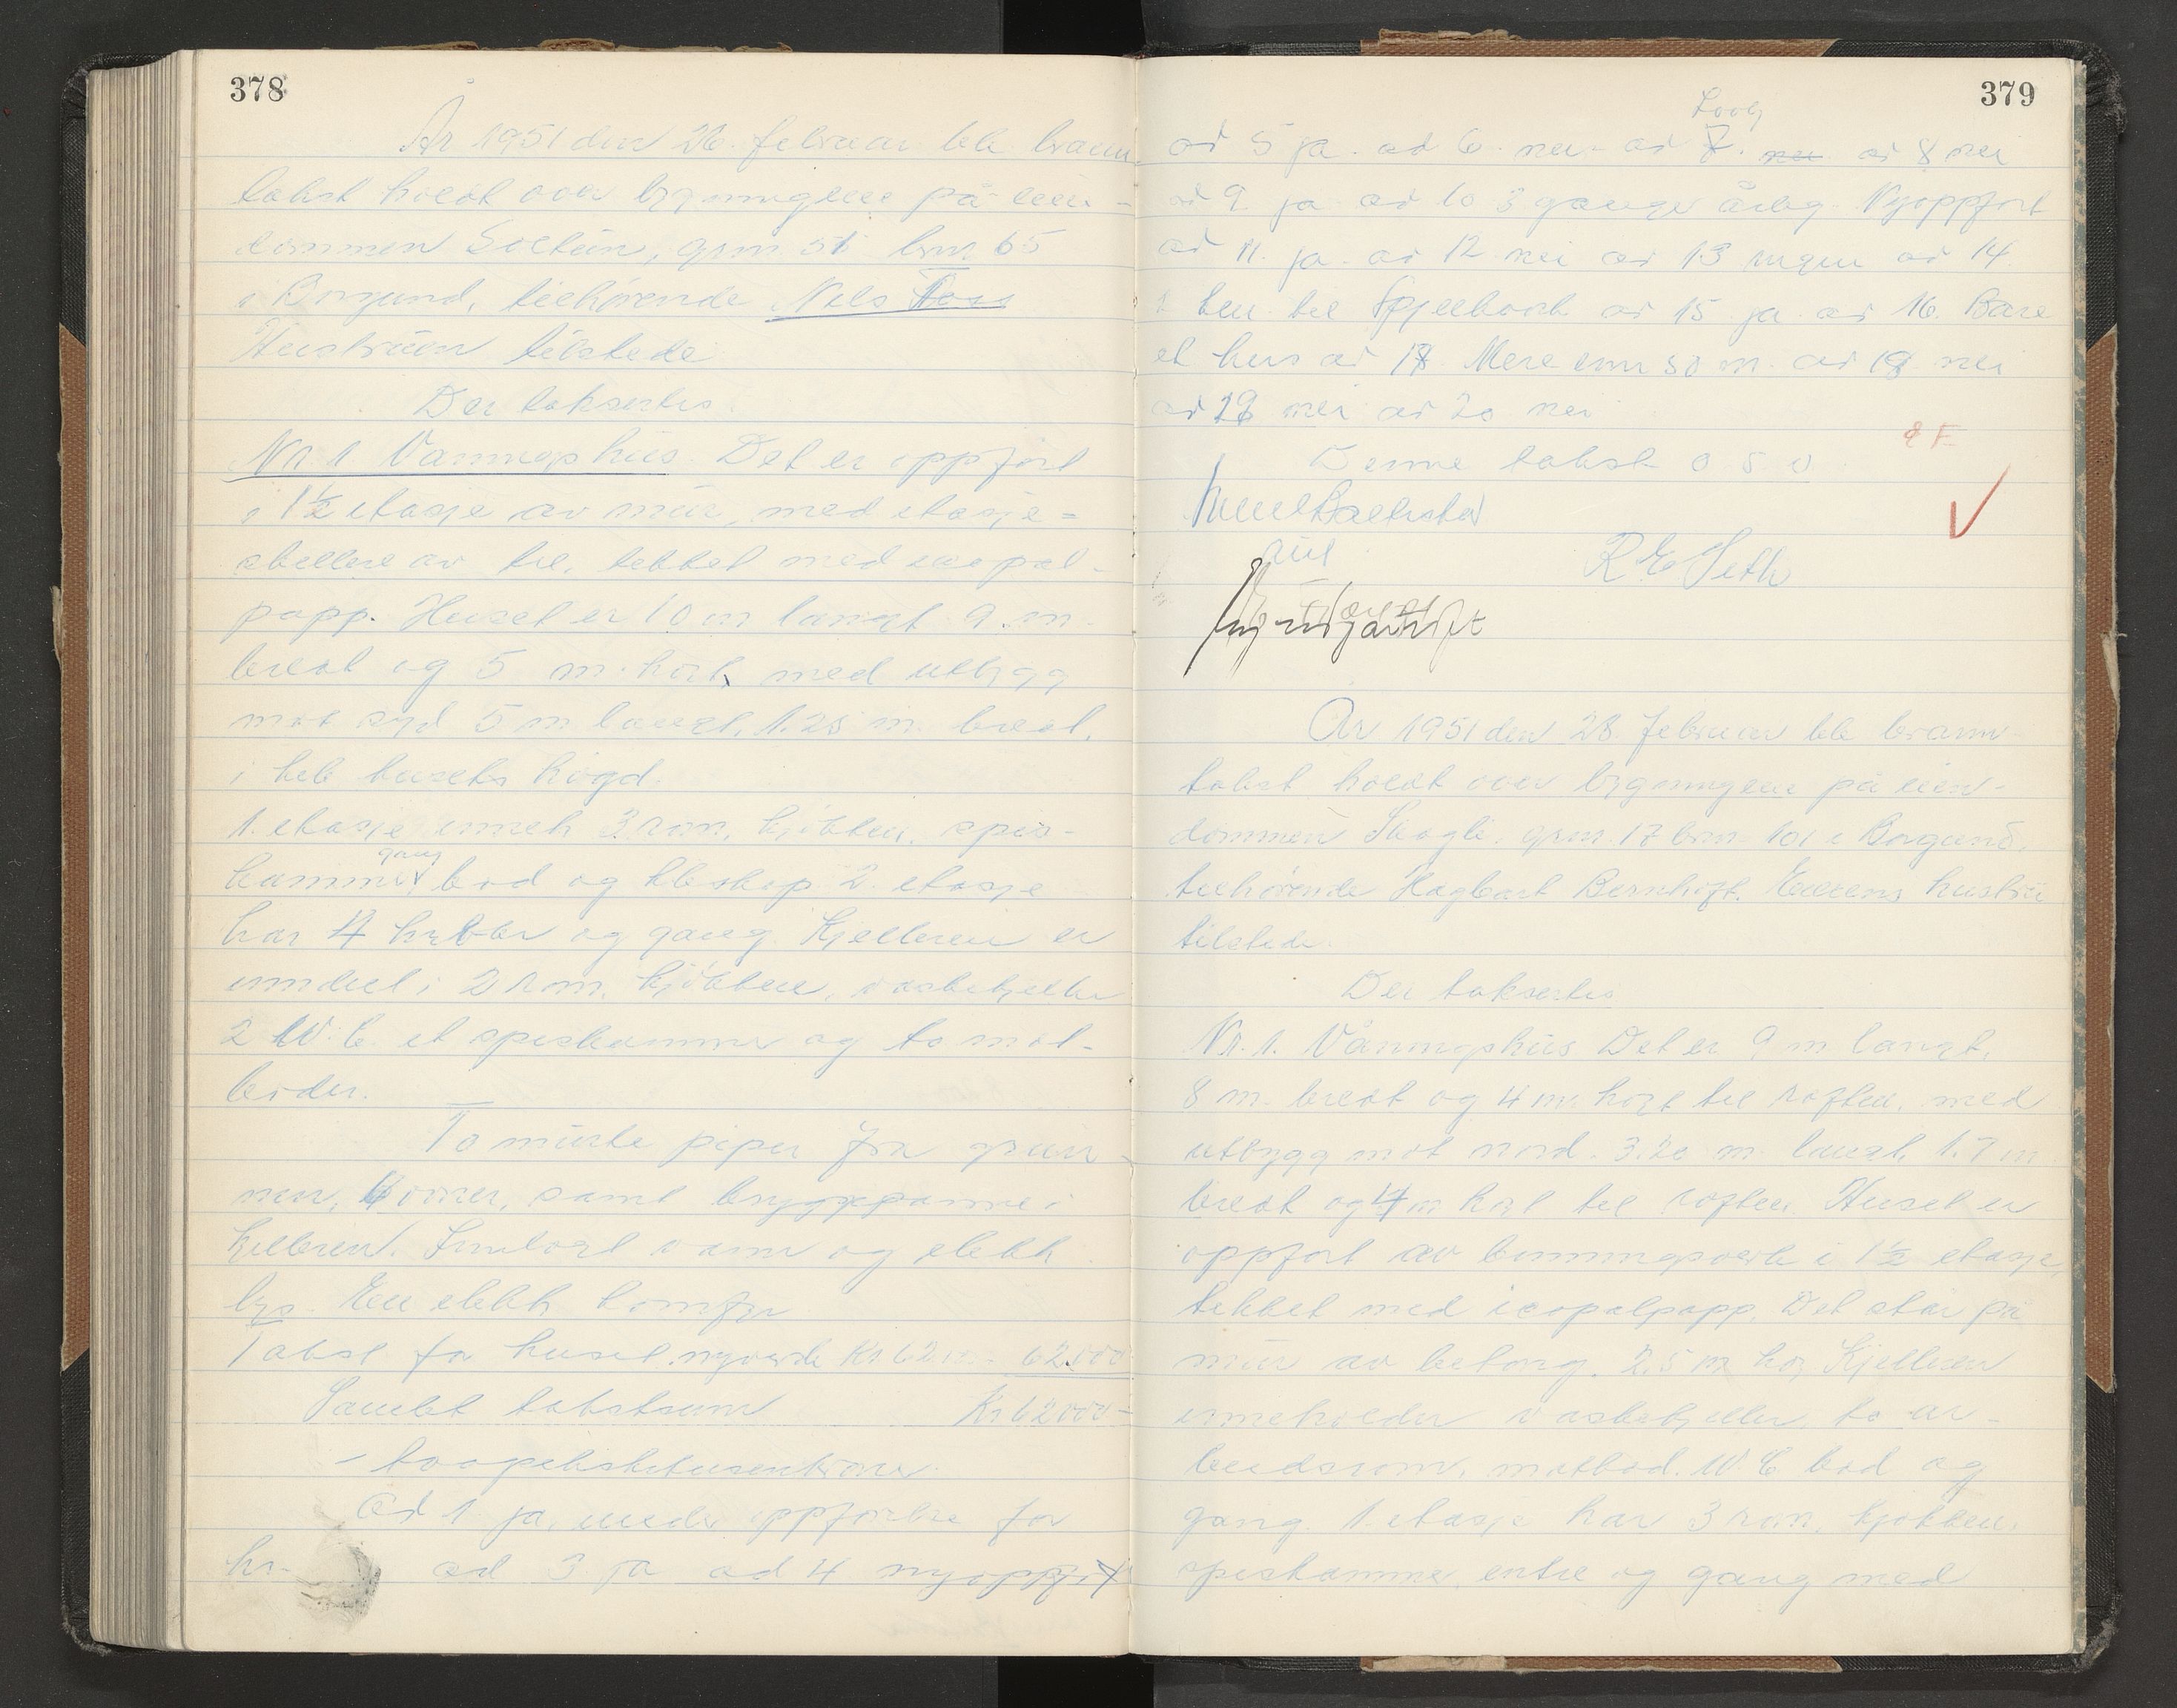 378
År 1951 den 26. februar ble brann
takst holdt over bygningene på eien-
dommen Soltun, grnr 51 brnr 65
i Borgund, tilhørende Nils Foss
Hustruen tilstede
Der taksertes
Nr. 1. Våningshus. Det er oppført
i 1½ etasje av mur, med etasje=
skillere av tre, tekket med icopal-
papp. Huset er 10 m langt 9. m.
bredt og 5 m. høit, med utbygg
mot syd 5 m langt, 1.25 m. bredt,
i hele husets høgd.
1. etasje inneh 3 rom, kjøkken, spis-
kammer, gang bod og kleskap 2. etasje
har 4 hybler og gang. Kjelleren er
inndeel i 2 rom, kjøkken, vaskekjeller
2 W.C. et spiskammer og to mat-
boder.
To murte piper fra grun-
nen, 4 ovner, samt bryggepanne i
kjelleren. Innlagt vann og elekk
lys. En elekk komfyr
Takst for huset nyverdi Kr 62.000- 62.000
Samlet takstsum Kr 62000-
- toogsekstitusenkroner.
Ad 1 ja, under oppførelse for
kr. ad 3 ja ad 4 nyoppført
379
ad 5 ja. ad 6. nei- ad 7. nei ad 8 nei
ad 9 ja ad 10 3 gange årlig. Nyoppført
ad 11. ja. ad 12 nei ad 13 ingen ad 14
1 km. til Spjelkavik ad 15 ja. ad 16. Bare
et hus ad 17. Mere enn 30 m. ad 18 nei
ad 19 nei ad 20 nei
Denne takst o s v
R E Seth
År 1951 den 28. februar ble brann
takst holdt over bygningene på eien-
dommen Skogli. grnr. 17 brnr 101 i Borgund.
tilhørende Hagbart Bernhoft. Eierens hustru
tilstede.
Der taksertes
Nr. 1. Våningshus Det er 9 m langt,
8 m. bredt og 4 m. høit til raften, med
utbygg mot nord. 3.20 m. langt 1.7 m
bredt og 4 m høit til raften. Huset er
oppført av binningsverk i 1½ etasje,
tekket med icopalpapp. Det står på
mur av betong. 2.5 m høi Kjelleren
inneholder vaskekjeller, to ar-
beidsrom, matbod. W.C. bod og
gang. 1. etasje har 3 rom, kjøkken.
spiskammer, entre og gang med